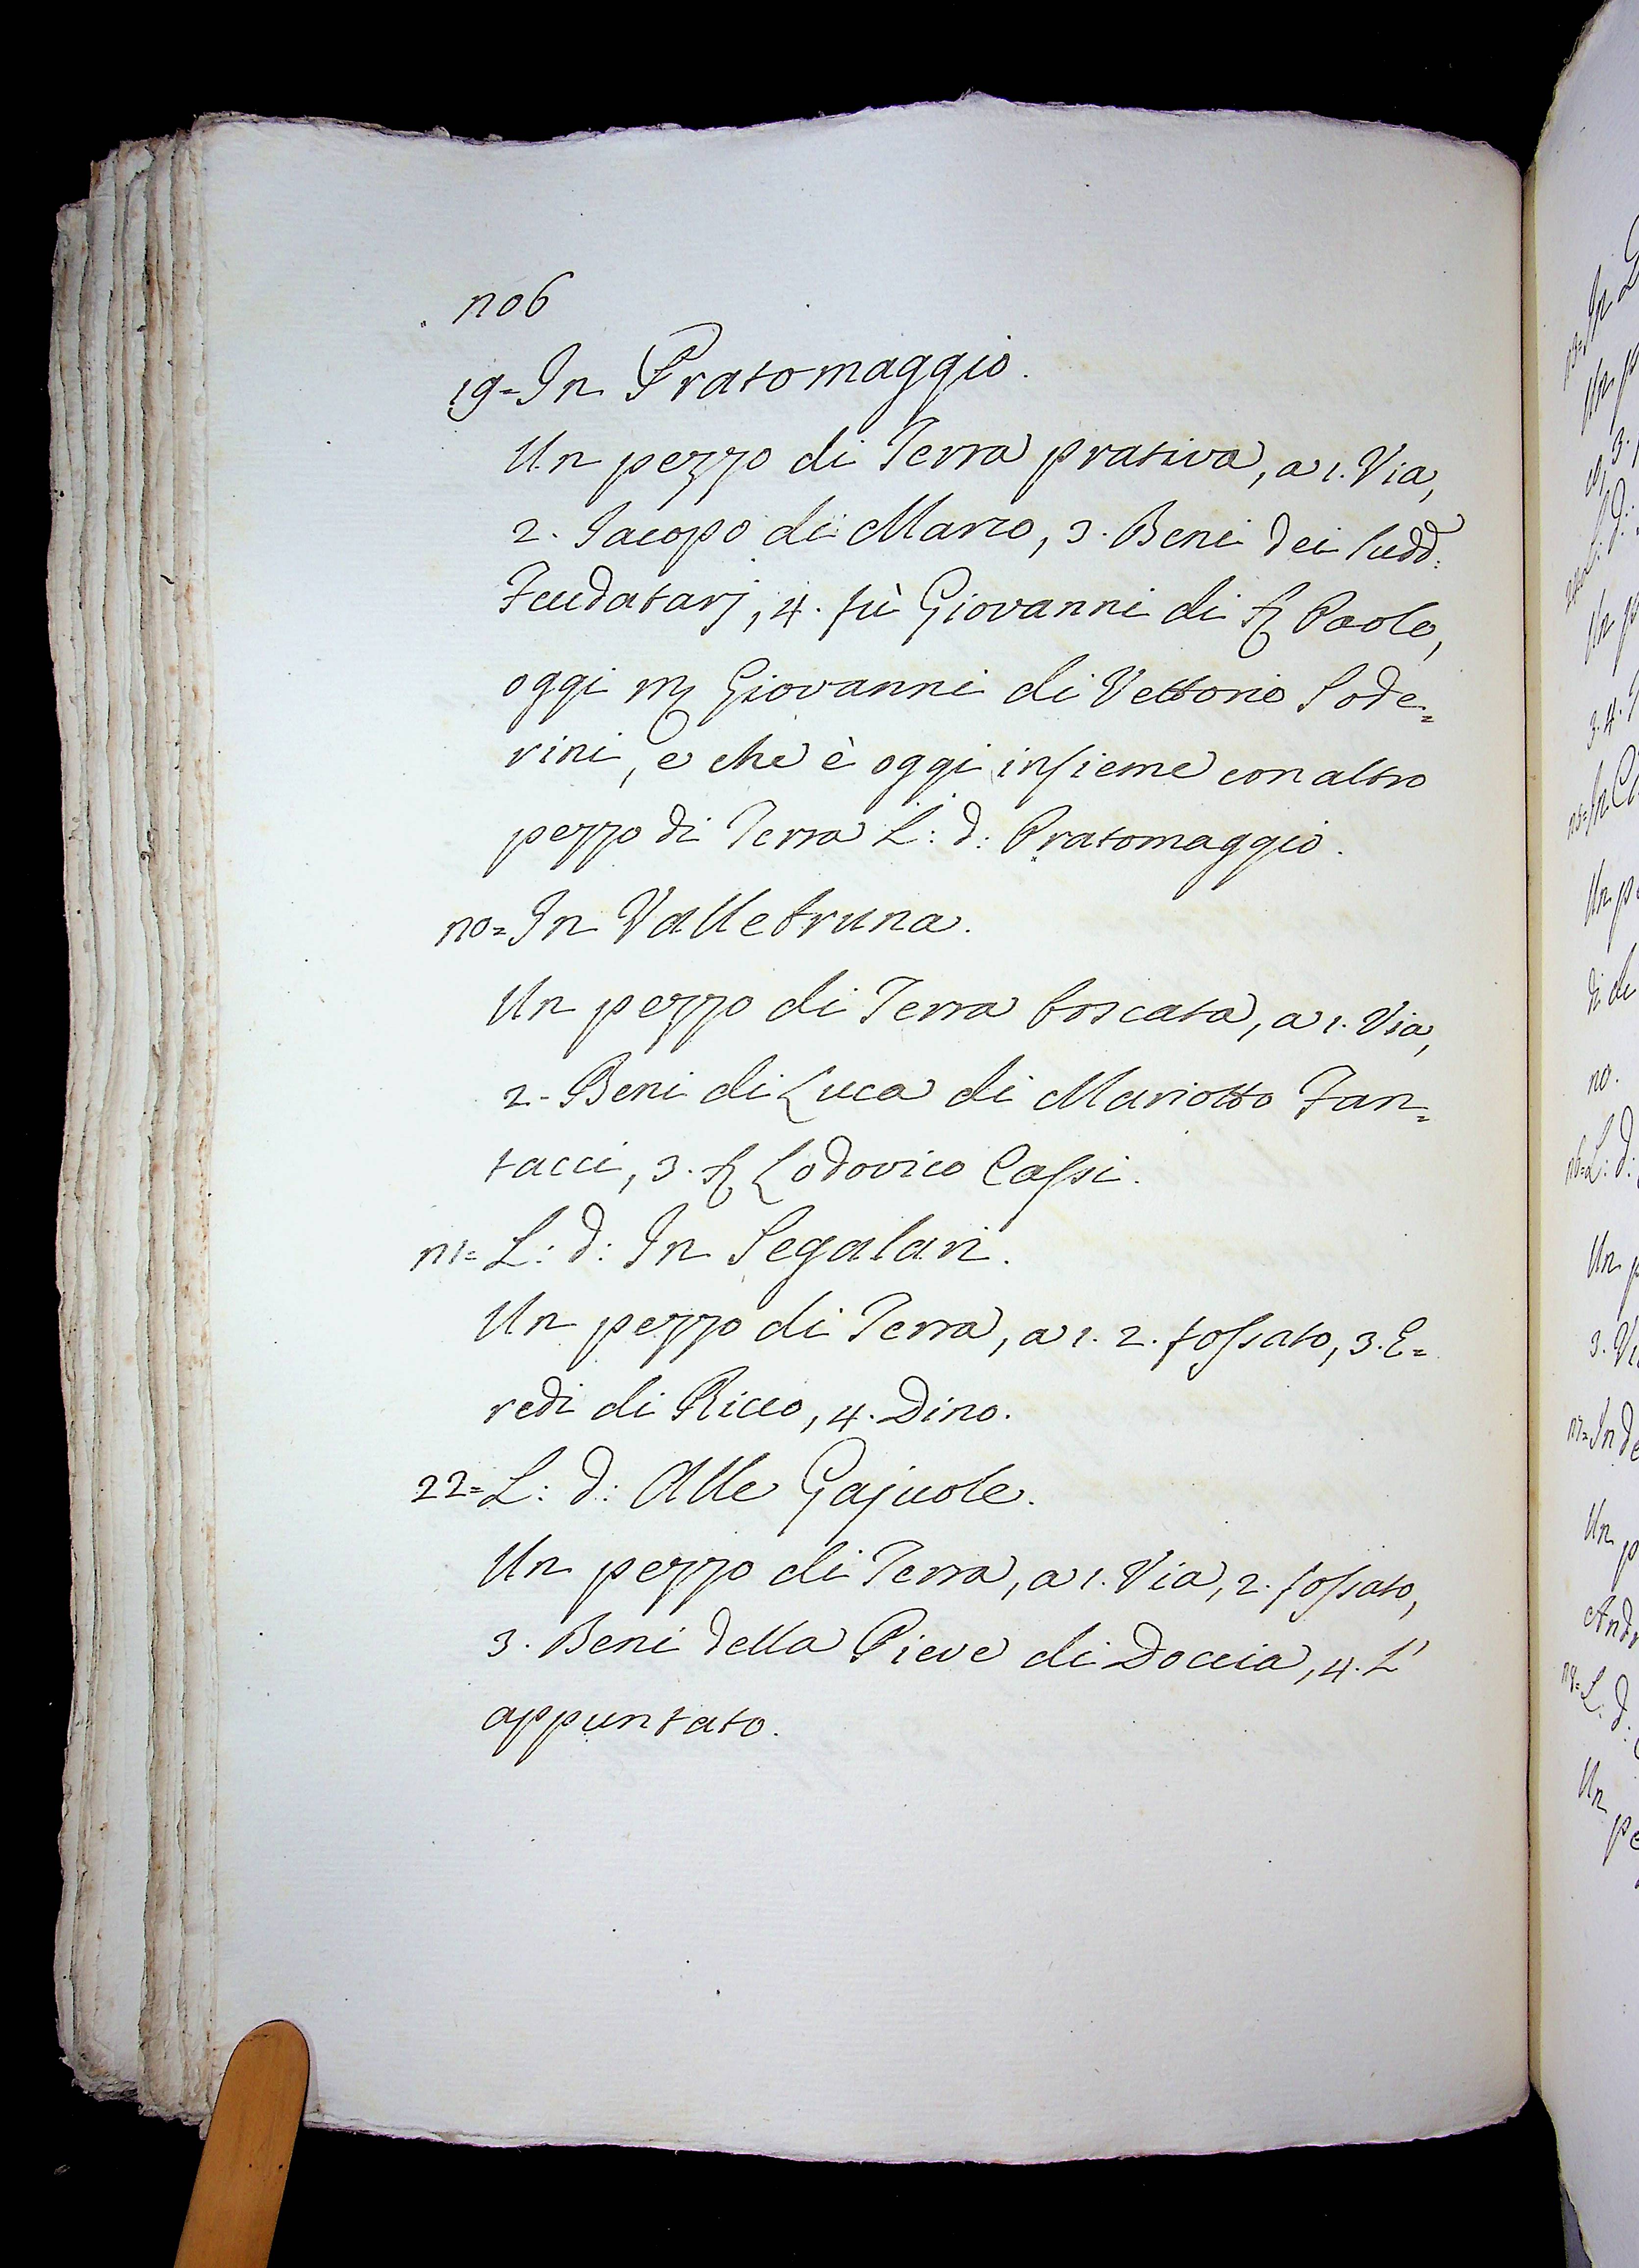 206
19= In Pratomaggio.
Un pezzo di Terra prativa, a 1. Via,
2. Jacopo di Marco, 3. Beni dei sudd:
Feudatarj, 4. fù Giovanni di S. Paolo,
oggi M. Giovanni di Vettorio Sode=
rini, e che è oggi insieme con altro
pezzo di Terra L: d: Pratomaggio.
20= In Valletruna.
Un pezzo di Terra boscata, a 1. Via,
2. Beni di Luca di Mariotto Fan=
tacci, 3. S. Lodovico Cassi.
21= L: d: In Segalari.
Un pezzo di Terra, a 1. 2. fossato, 3. E=
redi di Ricco, 4. Dino.
22= L: d: Alle Gajuole.
Un pezzo di Terra, a 1. Via, 2. fossato,
3. Beni della Pieve di Doccia, 4. L'
appuntato.